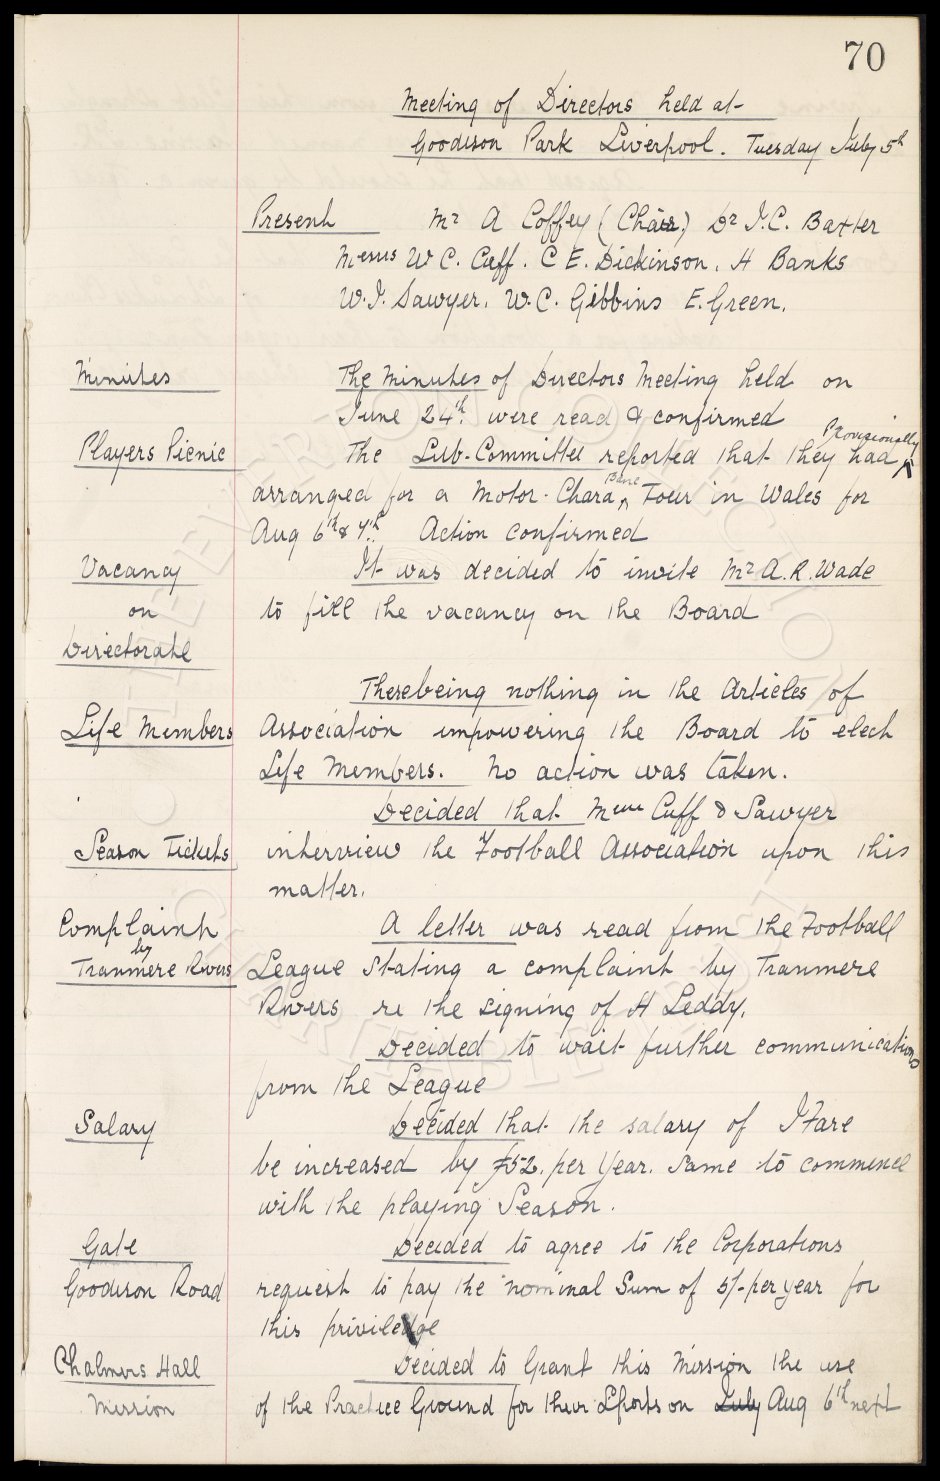 70
Meeting of Directors held at
Goodison Park Liverpool. Tuesday July 5th
Present Mr A Coffey (Chair) Dr J.C. Baxter
Messrs W C. Cuff. C E. Dickinson. H Banks
W.J. Sawyer. W.C. Gibbins E. Green.
Minutes The Minutes of Directors Meeting held on
June 24th were read & confirmed
Players Picnic The Sub-Committee reported that they had provisionally
arranged for a Motor-Chara Banc Tour in Wales for
Aug 6th & 7th. Action confirmed
Vacancy It was decided to invite Mr A.R. Wade
on to fill the vacancy on the Board
Directorate
There being nothing in the Articles of
Life Members Association empowering the Board to elect
Life Members. No action was taken.
Decided that Messrs Cuff & Sawyer
Season Tickets interview the Football Association upon this
matter.
Complaint A letter was read from the Football
by
Tranmere Rovers League stating a complaint by Tranmere
Rovers re the signing of H Leddy.
Decided to wait further communications
from the League
Salary Decided that the salary of J Fare
be increased by £52. per Year. Same to commence
with the playing Season.
Gate Decided to agree to the Corporations
Goodison Road request to pay the nominal Sum of 5/- per year for
this priviledge
Chalmers Hall Decided to Grant this Mission the use
Mission of the Practice Ground for their Sports on July Aug 6th next